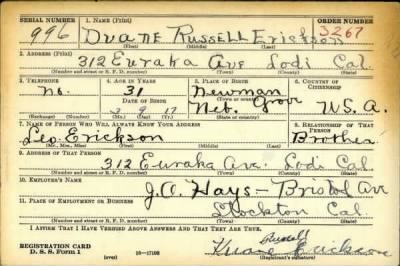 SERIAL NUMBER 1. NAME (Print) ORDER NUMBER
996 Duane Russell Erickson 3267
(First) (Middle) (Last)
2. ADDRESS (Print)
312 Euraka Ave Lodi Cal.
(Number and street or R. F. D. number) (Town) (County) (State)
3. TELEPHONE 4. AGE IN YEARS 5. PLACE OF BIRTH 6. COUNTRY OF CITIZENSHIP
No. 31 Newman Grove
DATE OF BIRTH (Town or county)
17 Neb. U.S.A.
(Exchange) (Number) (Mo.) (Day) (Yr.) (State or country)
7. NAME OF PERSON WHO WILL ALWAYS KNOW YOUR ADDRESS 8. RELATIONSHIP OF THAT PERSON
Leo Erickson Brother
(Mr., Mrs., Miss) (First) (Middle) (Last)
9. ADDRESS OF THAT PERSON
312 Euraka Ave. Lodi Cal.
(Number and street or R. F. D. number) (Town) (County) (State)
10. EMPLOYER'S NAME
J.O. Hays - Bristol Av
11. PLACE OF EMPLOYMENT OR BUSINESS
Stockton Cal.
(Number and street or R. F. D. number) (Town) (County) (State)
I AFFIRM THAT I HAVE VERIFIED ABOVE ANSWERS AND THAT THEY ARE TRUE.
REGISTRATION CARD Russell
D. S. S. Form 1 (over) 16—17105 Duane Erickson
(Registrant's signature)